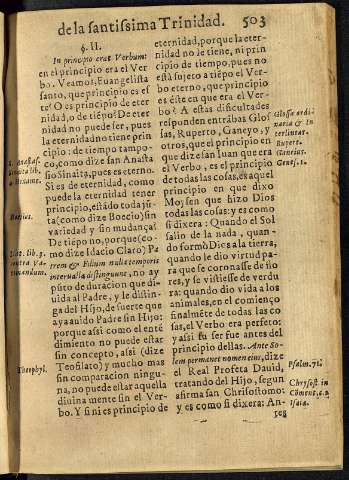 de la santissima Trinidad. 503
§. II.
In principio erat Verbum:
en el principio era el Ver
bo. Veamos, Euangelista
santo, que principio es es
te? O es principio de eter
nidad, o de tiẽpo? De eter
nidad no puede ser, pues
la eternidad no tiene prin
cipio: de tiempo tampo-
co, como dize san Anasta
sio Sinaita, pues es eterno.
Si es de eternidad, como
puede la eternidad tener
principio, siẽdo toda jũ-
ta (como dize Boecio) sin
variedad y sin mudança?
De tiẽpo no, porque (co-
mo dize Idacio Claro) Pa
trem & Filium nulla temporis
interualla distinguunt, no ay
pũto de duracion que di-
uida al Padre, y le distin-
ga del Hijo, de suerte que
aya auido Padre sin Hijo:
porque assi como el entẽ
dimiento no puede estar
sin concepto, assi (dize
Teofilato) y mucho mas
sin comparacion ningu-
na, no puede estar aquella
diuina mente sin el Ver-
bo. Y si ni es principio de
S. Anastas.
Sinaita lib.
Boetius.
contra Va
rimandum.
Theophyl.
eternidad, porque la eter-
nidad no le tiene, ni prin
cipio de tiempo, pues no
está sujeto a tiẽpo el Ver-
bo eterno, que principio
es este en que era el Ver-
bo? A estas dificultades
responden entrãbas Glos
sas, Ruperto, Ganeyo, y
otros, que el principio en
que dize san Iuan que era
el Verbo, es el principio
de todas las cosas, es aquel
principio en que dixo
Moysen que hizo Dios
todas las cosas: y es como
si dixera: Quando el Sol
salio de la nada, quan-
do formò Dios a la tierra,
quando le dio virtud pa-
ra que se coronasse de flo
res, y se vistiesse de verdu
ra: quando dio vida a los
animales, en el comienço
finalmẽte de todas las co
sas, el Verbo era perfeto:
y assi su ser fue antes del
principio dellas. Ante So-
lem permanet nomen eius, dize
el Real Profeta Dauid,
tratando del Hijo, segun
afirma san Chrisostomo:
y es como si dixera: An-
tes
Glossa ordi
naria & in
terlinear.
Rupert.
Ganeius.
Genes. 1.
Psalm. 71.
Chrysost. in
Cõment. c. 2.
Isaia.